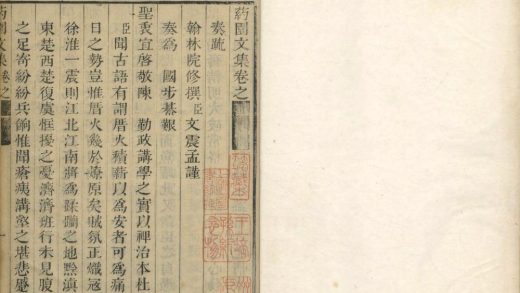 药園文集卷之
奏疏
翰林院修撰臣文震孟謹
奏爲 國步綦艱
聖衷宜啓敬陳 勤政講學之實以裨治本杜
臣聞古語有謂厝火積薪以爲安者可爲痛
日之勢豈惟厝火幾於燎原矣賊氛正熾寇
徐淮一震則江北江南將爲蹂躪之地黔滇
東楚西楚復虞恇擾之憂濟濟班行未見腹
之足寄紛紛兵餉惟聞瘡痍講壑之堪悲蹙
药園文集卷之